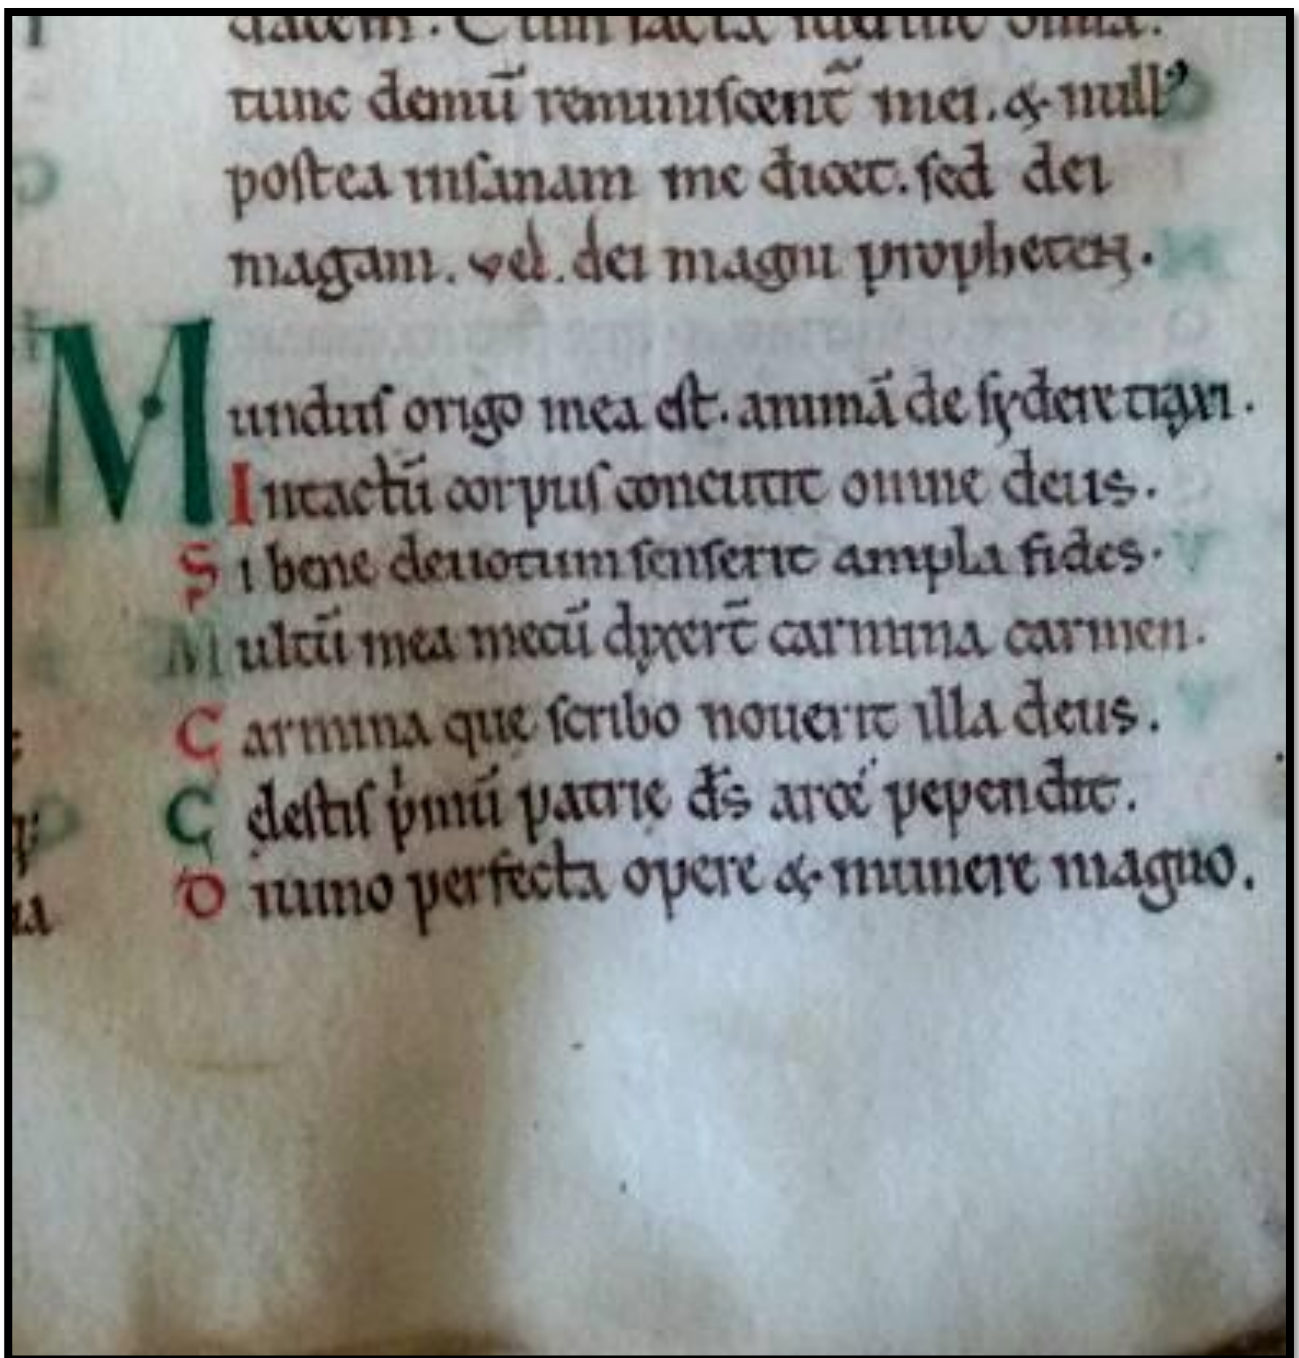 dacem. Cum facta
tunc demū reminiscent̄ mei. & null'
postea insanam me dicet. sed dei
magam. vel. dei magni
Mundus origo mea est. animā de sydere traxi.
Intactū corpus concutit omne deus.
Si bene deuotum senserit ampla fides.
Multū mea mecū dyxert̄ carmina carmen.
Carmina quę scribo nouerit illa deus.
Cęlestis pͥmū patrię d̄s arcē pependit.
Diuino perfecta opere & munere magno.